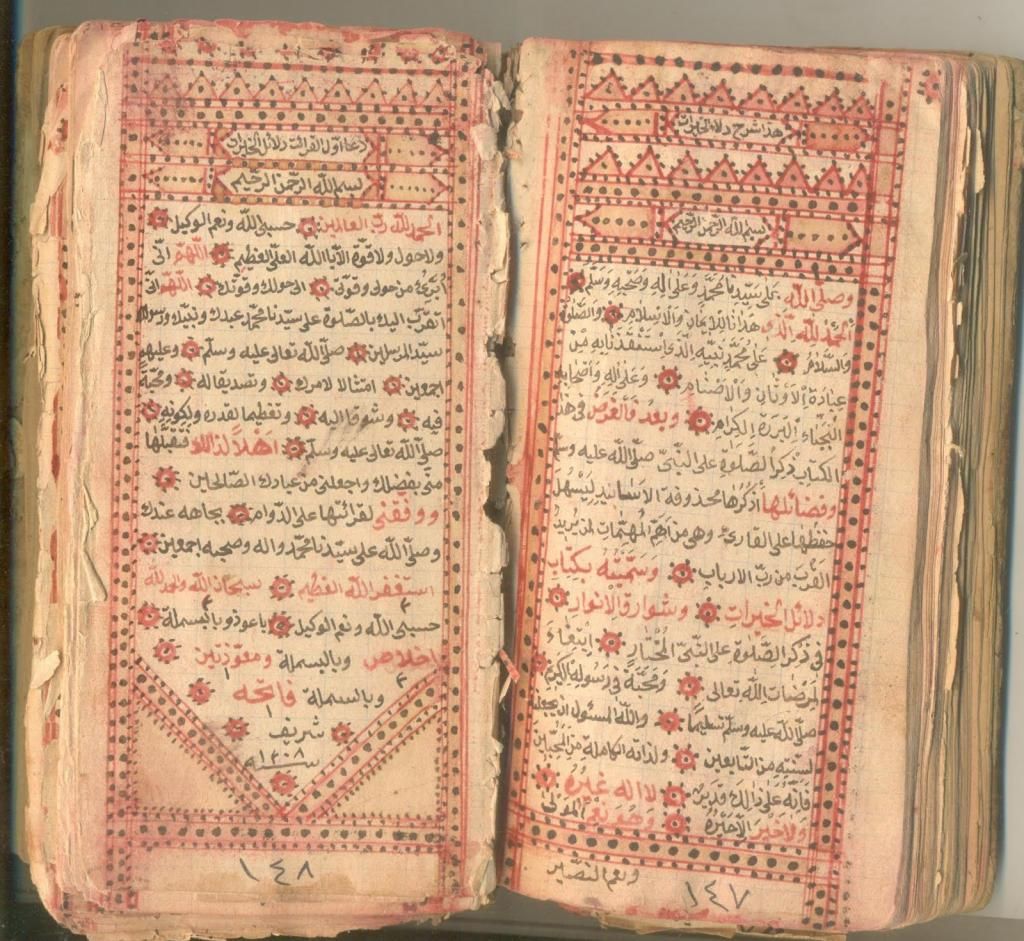 هذا شرح دلائل الخيرات
بسم الله الرحمن الرحيم
وصلى الله على سيدنا محمد وعلى اله وصحبه وسلم
الحمد لله الذى هدانا للايمان والاسلام والصلوة
والسلام على محمد نبيه الذى استنقذنا به من
عبادة الاوثان والاصنام وعلى اله واصحابه
النجباء البررة الكرام وبعد فالغرض فى هذ
الكتاب ذكر الصلوة على النبى صلى الله عليه وسلم
وفضائلها اذكرها محذوفة الاسانيد ليسهل
حفظها على القارئ وهى من اهم المهمات لمن يريد
القرب من رب الارباب وسميته بكتاب
دلائل الخيرات وشوارق الانوار
فى ذكر الصلوة على النبى المختار ابتغاء
لمرضات الله تعالى ومحبة فى رسوله الكريم
صلى الله عليه وسلم تسليما والله المسئول ان يجعلنا
لسنته من التابعين ولذاته الكاملة من المحبين
فانه على ذالك قدير لا اله غيره
ولا خير الا خيره وهو نعم المولى
ونعم النصير
١٤٧
دلائل الخيرات
بسم الله الرحمن الرحيم
الحمد لله رب العالمين حسبى الله ونعم الوكيل
ولا حول ولا قوة الا بالله العلى العظيم اللهم انى
ابرئ من حولى وقوتى الى حولك وقوتك اللهم انى
اتقرب اليك بالصلوة على سيدنا محمد عبدك ونبيك ورسولك
سيد المرسلين صلى الله تعالى عليه وسلم وعليهم
اجمعين امتثالا لامرك وتصديقا له ومحبة
فيه وشوقا اليه وتعظيما لقدره ولكونه
صلى الله تعالى عليه وسلم اهلا لذالك فتقبلها
منى بفضلك واجعلنى من عبادك الصالحين
ووفقنى لقرائتها على الدوام بجاهه عندك
وصلى الله على سيدنا محمد واله وصحبه اجمعين
استغفر الله العظيم سبحان الله والحمد لله
حسبى الله ونعم الوكيل باعوذ وبالبسملة
اخلاص وبالبسملة ومعوذتين
وبالبسملة فاتحه
شريف
سنه ١٣٠٨
١٤٨